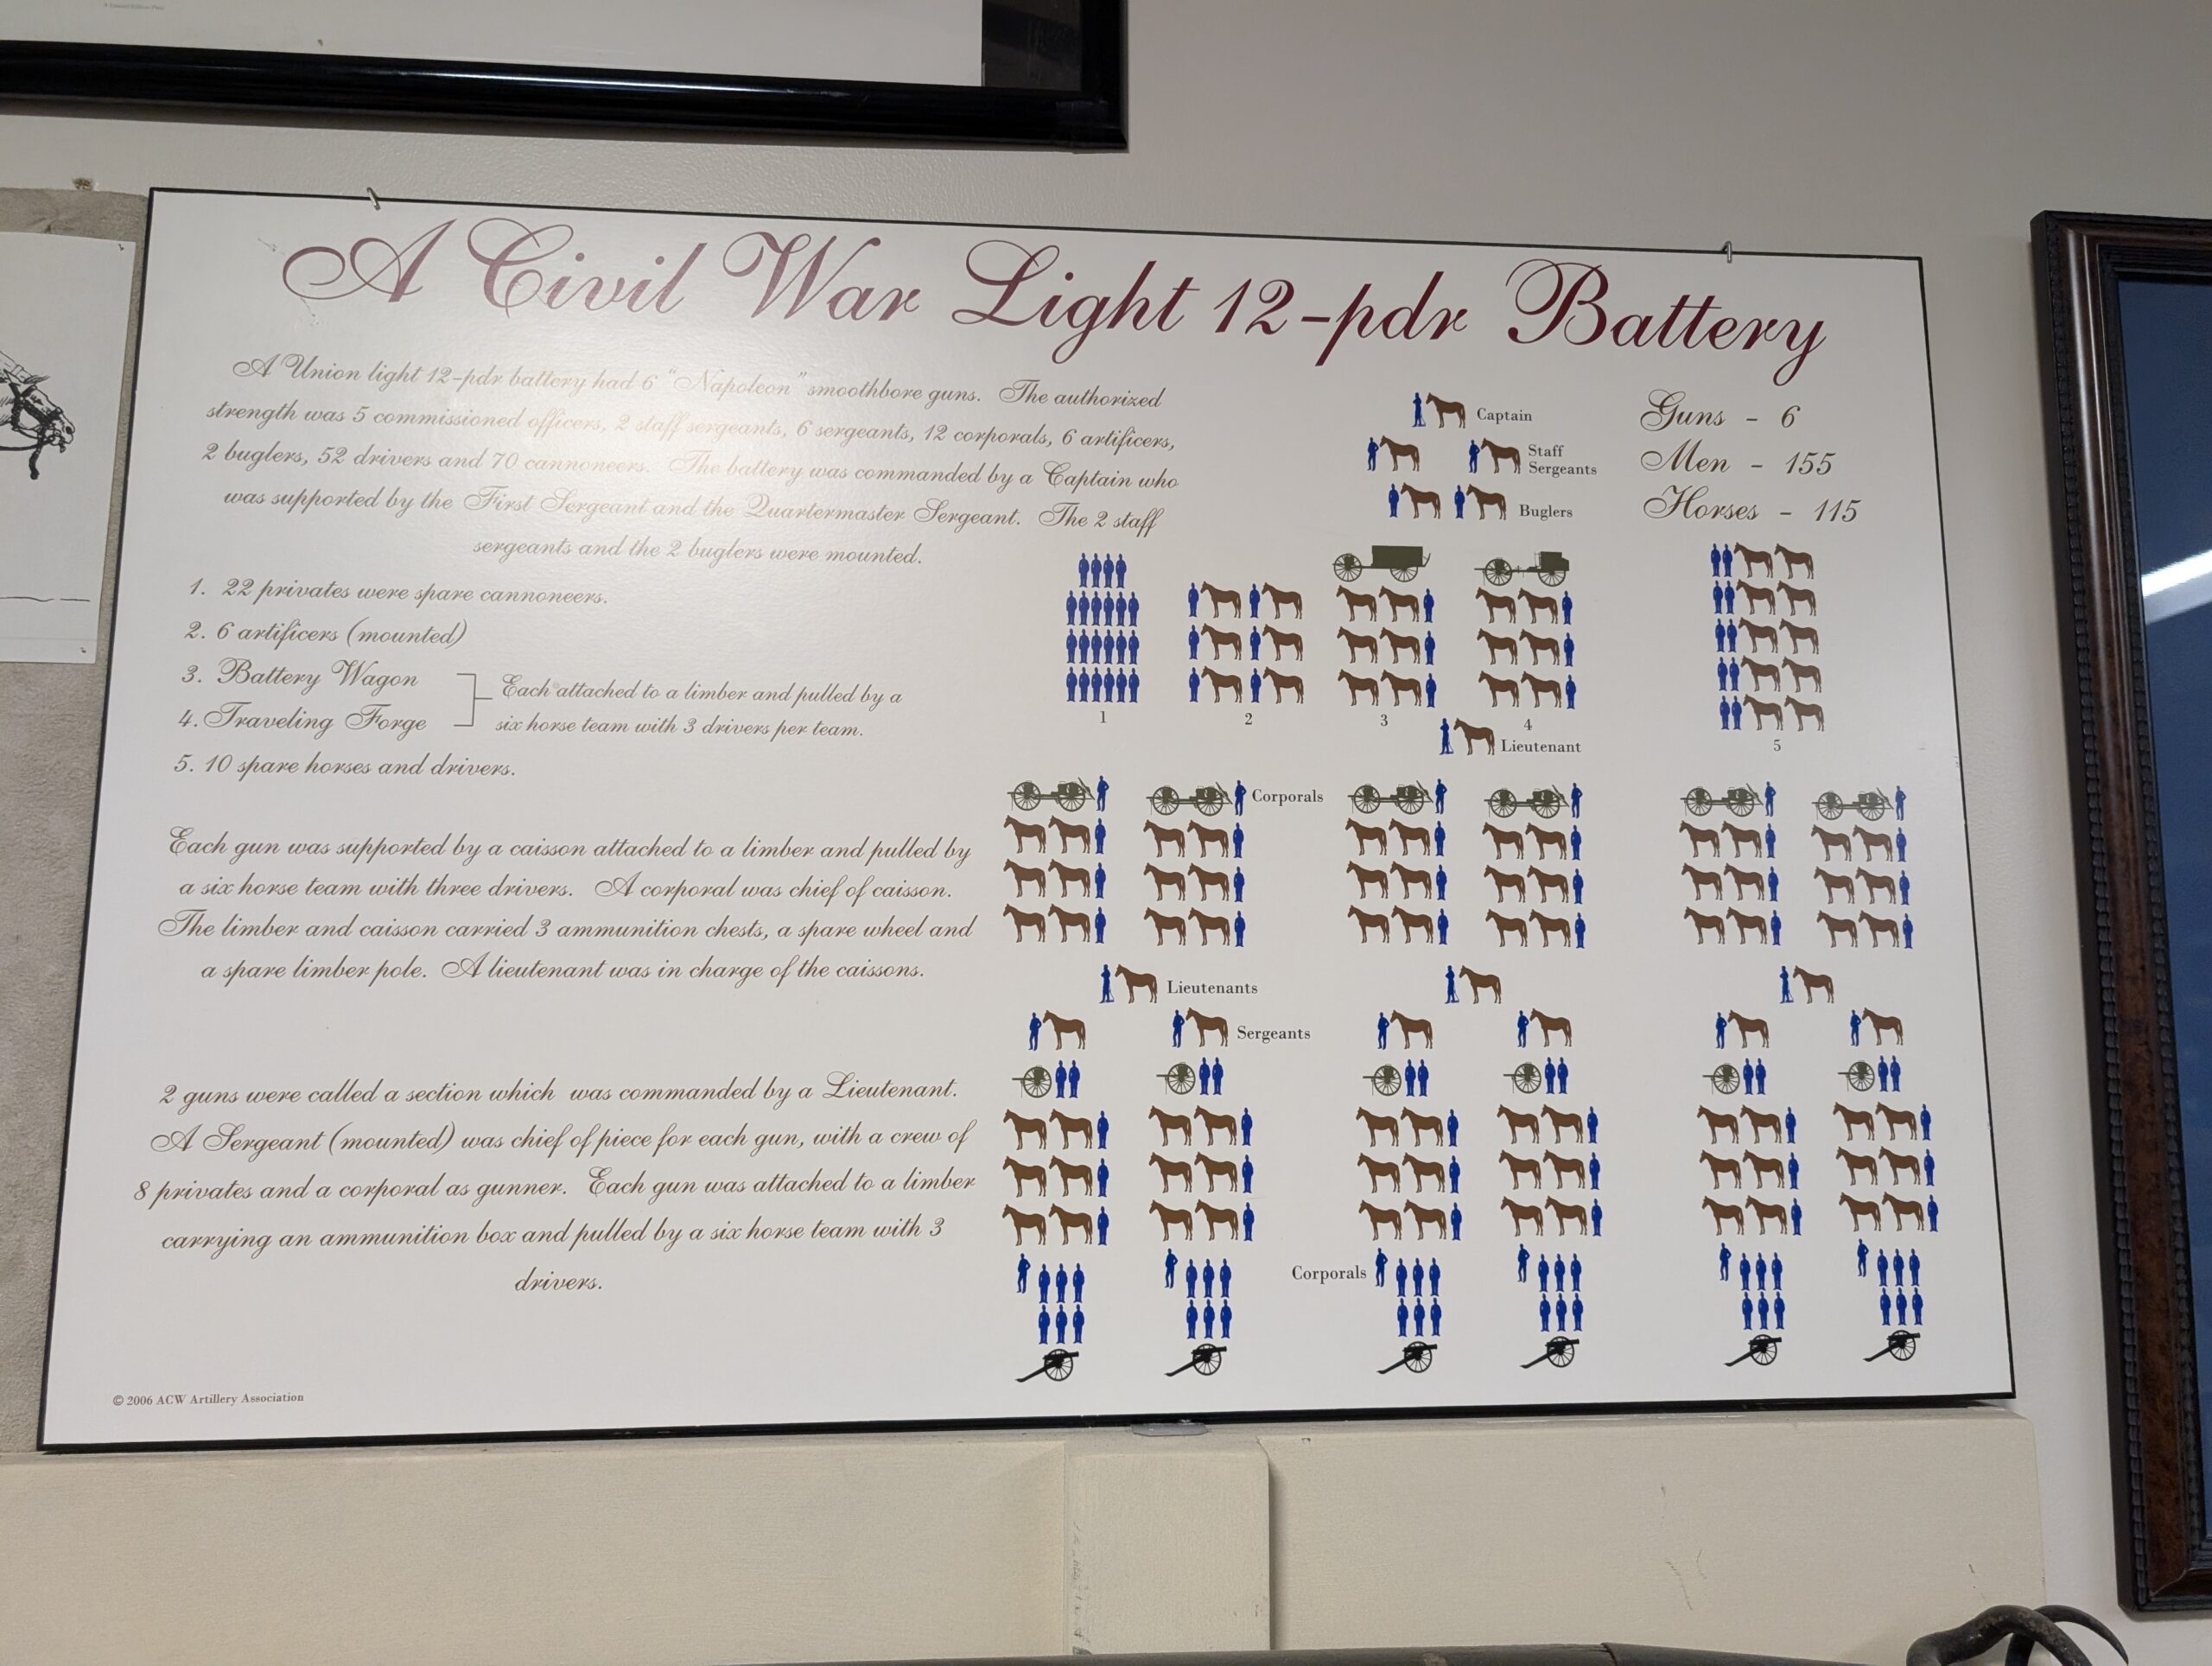 A Civil War Light 12-pdr Battery
A Union light 12-pdr battery had 6 "Napoleon" smoothbore guns. The authorized
strength was 5 commissioned officers, 2 staff sergeants, 6 sergeants, 12 corporals, 6 artificers,
2 buglers, 52 drivers and 70 cannoneers. The battery was commanded by a Captain who
was supported by the First Sergeant and the Quartermaster Sergeant. The 2 staff
sergeants and the 2 buglers were mounted.
1. 22 privates were spare cannoneers.
2. 6 artificers (mounted)
3. Battery Wagon
4. Traveling Forge
Each attached to a limber and pulled by a
six horse team with 3 drivers per team.
5. 10 spare horses and drivers.
Each gun was supported by a caisson attached to a limber and pulled by
a six horse team with three drivers. A corporal was chief of caisson.
The limber and caisson carried 3 ammunition chests, a spare wheel and
a spare limber pole. A lieutenant was in charge of the caissons.
2 guns were called a section which was commanded by a Lieutenant.
A Sergeant (mounted) was chief of piece for each gun, with a crew of
8 privates and a corporal as gunner. Each gun was attached to a limber
carrying an ammunition box and pulled by a six horse team with 3
drivers.
© 2006 ACW Artillery Association
Captain
Staff
Sergeants
Buglers
Guns - 6
Men - 155
Horses - 115
1
2
3
4
5
Lieutenant
Corporals
Lieutenants
Sergeants
Corporals